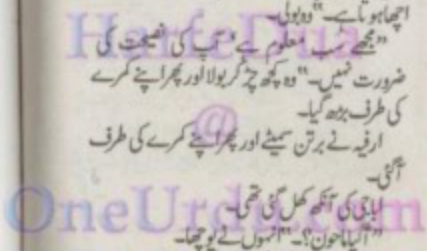 اچھا ہوتا ہے۔" وہ بولی۔
"مجھے سب معلوم ہے' آپ کی نصیحت کی
ضرورت نہیں۔" وہ کچھ چڑ کر بولا اور پھر اپنے کمرے
کی طرف بڑھ گیا۔
ارفیہ نے برتن سمیٹے اور پھر اپنے کمرے کی طرف
آگئی۔
اباجی کی آنکھ کھل گئی تھی۔
"آلیا خون؟۔" انہوں نے پوچھا۔
HarfeDua
@
OneUrdu.com